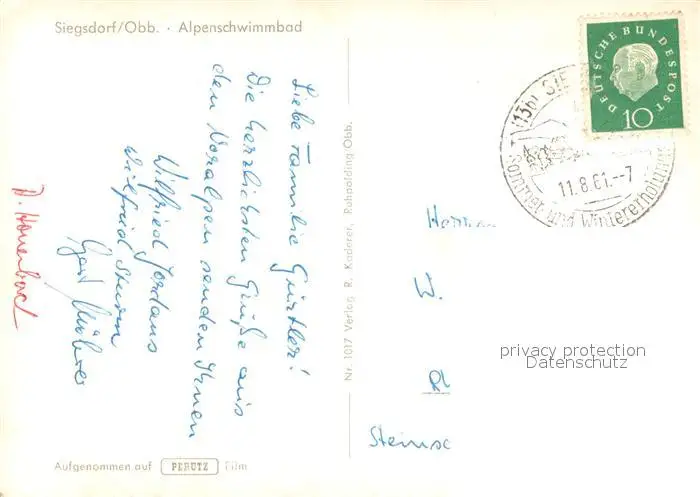 Siegsdorf/Obb. · Alpenschwimmbad
Liebe Familie Gürtler!
Die herzlichsten Grüße aus
den Voralpen senden Ihnen
Wilfried Jordans
Wilfried Sturm
Gerd
Nr. 1017 Verlag R. Kaderer, Ruhpolding/Obb.
DEUTSCHE BUNDESPOST
10
(13b) SIE
11.8.61.--7
Sommer und Wintererholung
Herrn
W.
a
Steinsc
privacy protection
Datenschutz
Aufgenommen auf PERUTZ Film